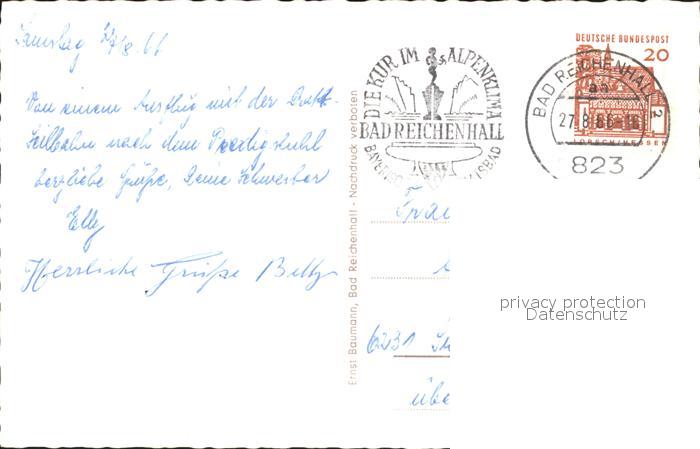 Samstag 27/8.66
Von einem Ausflug mit der Draht-
Seilbahn nach dem Predigtstuhl
herzliche Grüße, Deine Schwester
Elly
Herzliche Grüße Betty
Ernst Baumann, Bad Reichenhall - Nachdruck verboten
DIE KUR IM ALPENKLIMA
BAD REICHENHALL
DEUTSCHE BUNDESPOST
20
LORSCH/HESSEN
BAD REICHENHALL 2
ah
27.8.66-18
823
Frau
6231
übe
privacy protection
Datenschutz